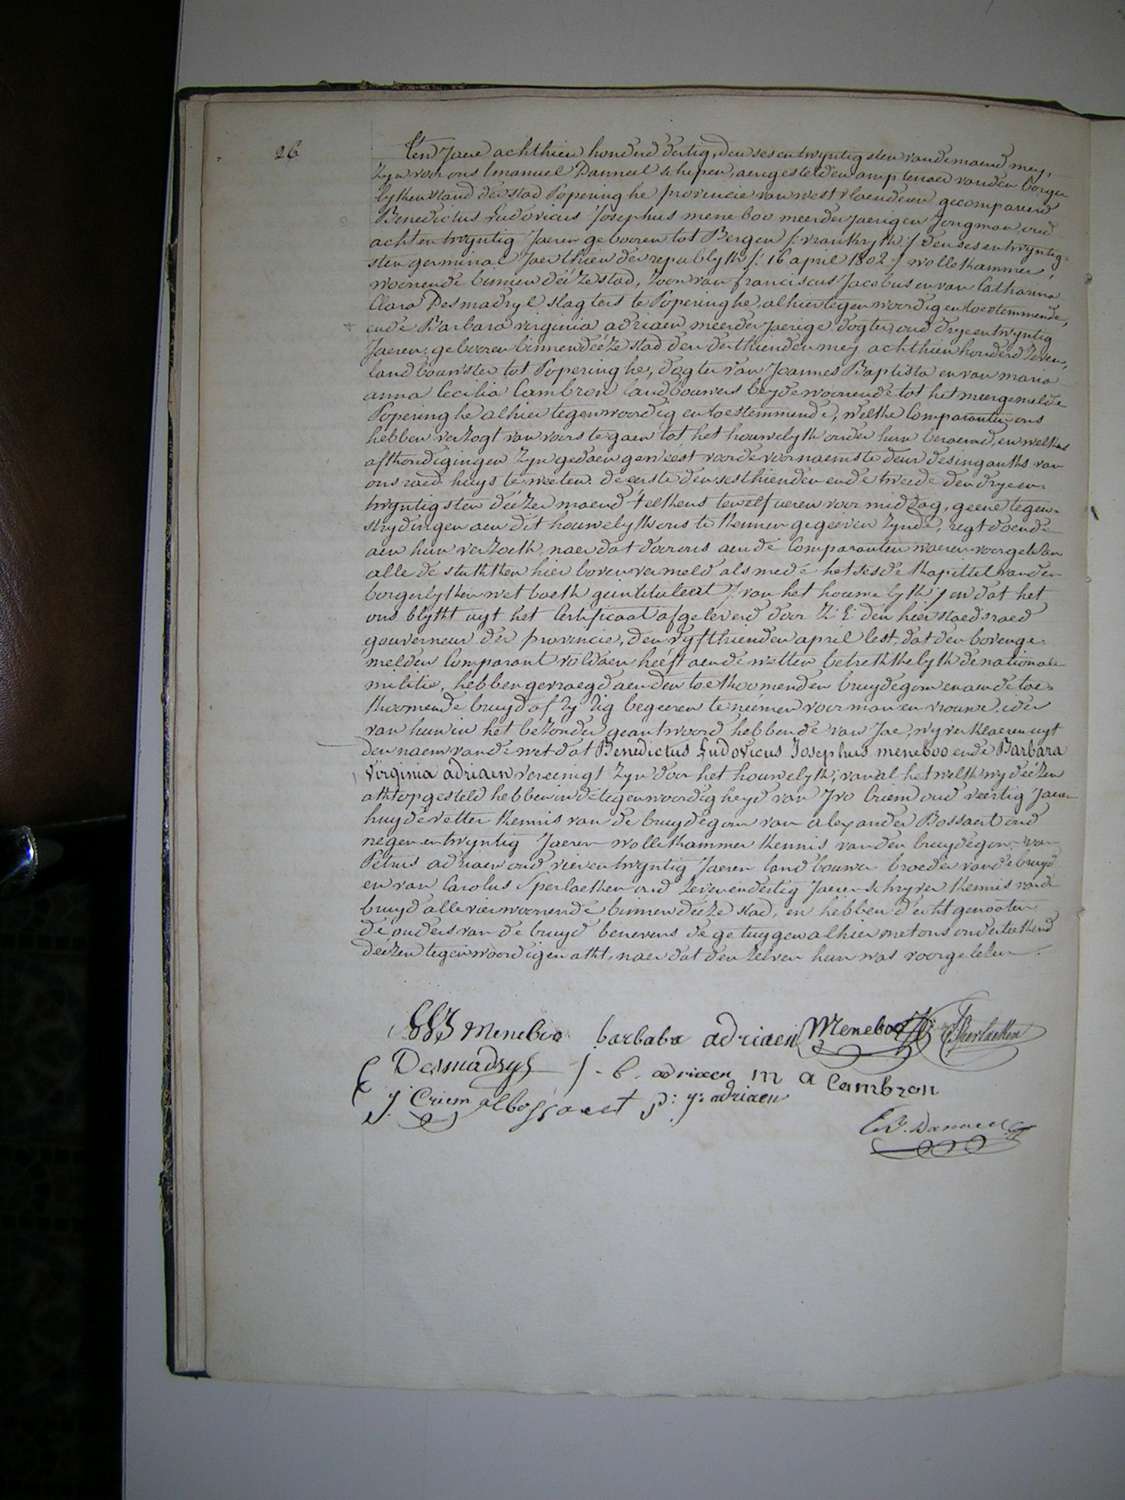 26
Ten Jaere achthien honderd dertig, den sesentwyntigsten van de maend mey,
Zyn voor ons Emanuel Danneel schepen, aengestelden amptenaer van den borger
lyken stand der stad Poperinghe provincie van westvlaenderen gecompareerd
Benedictus Ludovicus Josephus meneboo meerderjaerigen Jongman oud
achtentwyntig Jaeren gebooren tot Bergen /: vrankryk :/ den sesentwyntig-
sten germinal Jaer thien der republyk /: 16 april 1802 :/ wollekammer
woonende binnen deéze stad, Zoon van franciscus Jacobus en van Catharina
Clara Desmadryl slagters te Poperinghe, alhier tegenwoordig en toestemmende,
ende Barbara virginia adriaen meerderjaerige dogter oud dryentwyntig
Jaeren, gebooren binnen deéze stad den derthienden mey achthien honderd zeven,
landbouwster tot Poperinghe, dogter van Joannes Baptista en van maria
anna Cecilia Cambron landbouwers beyde woonende tot het meergemelde
Poperinghe alhier tegenwoordig en toestemmende, welke Comparanten ons
hebben verzogt van voorste gaen tot het houwelyk onder hun beraemd, en welkers
afkondigingen Zyn gedaen geweest voor de voornaemste deur des ingankx van
ons raedhuys te weeten de eerste den sesthienden ende tweede den dryen-
twyntigsten déézer maend telkens ten elf ueren voor middag, geene tegen-
strydingen aen dit houwelyk ons te kennen gegeeven Zynde, regt doende
aen hun verzoek, naer dat door ons aen de Comparanten waeren voorgelezen
alle de stukken hier boven vermeld als mede het sesde kapittel van den
borgerlyken wetboek geintituleert /: van het houwelyk :/ en dat het
ons blykt uyt het Certificaat afgeleverd door Z: E: den heer staedsraed
gouverneur der provincie, den vyfthienden april lest, dat den bovenge-
melden Comparant voldaen heéft aen de wetten betrekkelyk de nationale
militie, hebben gevraegd aen den toekoomenden bruydegom en aen de toe-
koomende bruyd of Zy Zig begeeren te neémen voor man en vrouwe ider
van hun in het bezonder geantwoord hebbende van Jae, wy verklaeren uyt
den naem van de wet dat Benedictus Ludovicus Josephus meneboo ende Barbara
Virginia adriaen vereenigt Zyn door het houwelyk, van al het welk wy deézen
akt opgesteld hebben in de tegenwoordigheyd van Ivo Criem oud veertig Jaeren
huydevetter kennis van de bruydegom van alexander Bossaert oud
negenentwyntig Jaeren wollekammer kennis van den bruydegom, van
Petrus adriaen oud vierentwyntig Jaeren landbouwer broeder van de bruyd
en van Carolus Sperlaeken oud zevenendertig Jaeren schryver kennis van de
bruyd alle vier woonende binnen deéze stad, en hebben d'echtgenooten
de ouders van de bruyd benevens de getuygen alhier met ons onderteekend
deézen tegenwoordigen akt, naer dat den zelven hun was voorgelezen.
Meneboo barbaba adriaen Meneboo Sperlaeken
Desmadryl j - b - adriaen m a Cambron
j: Criem al bossaert p: j: adriaen
Em. Danneel